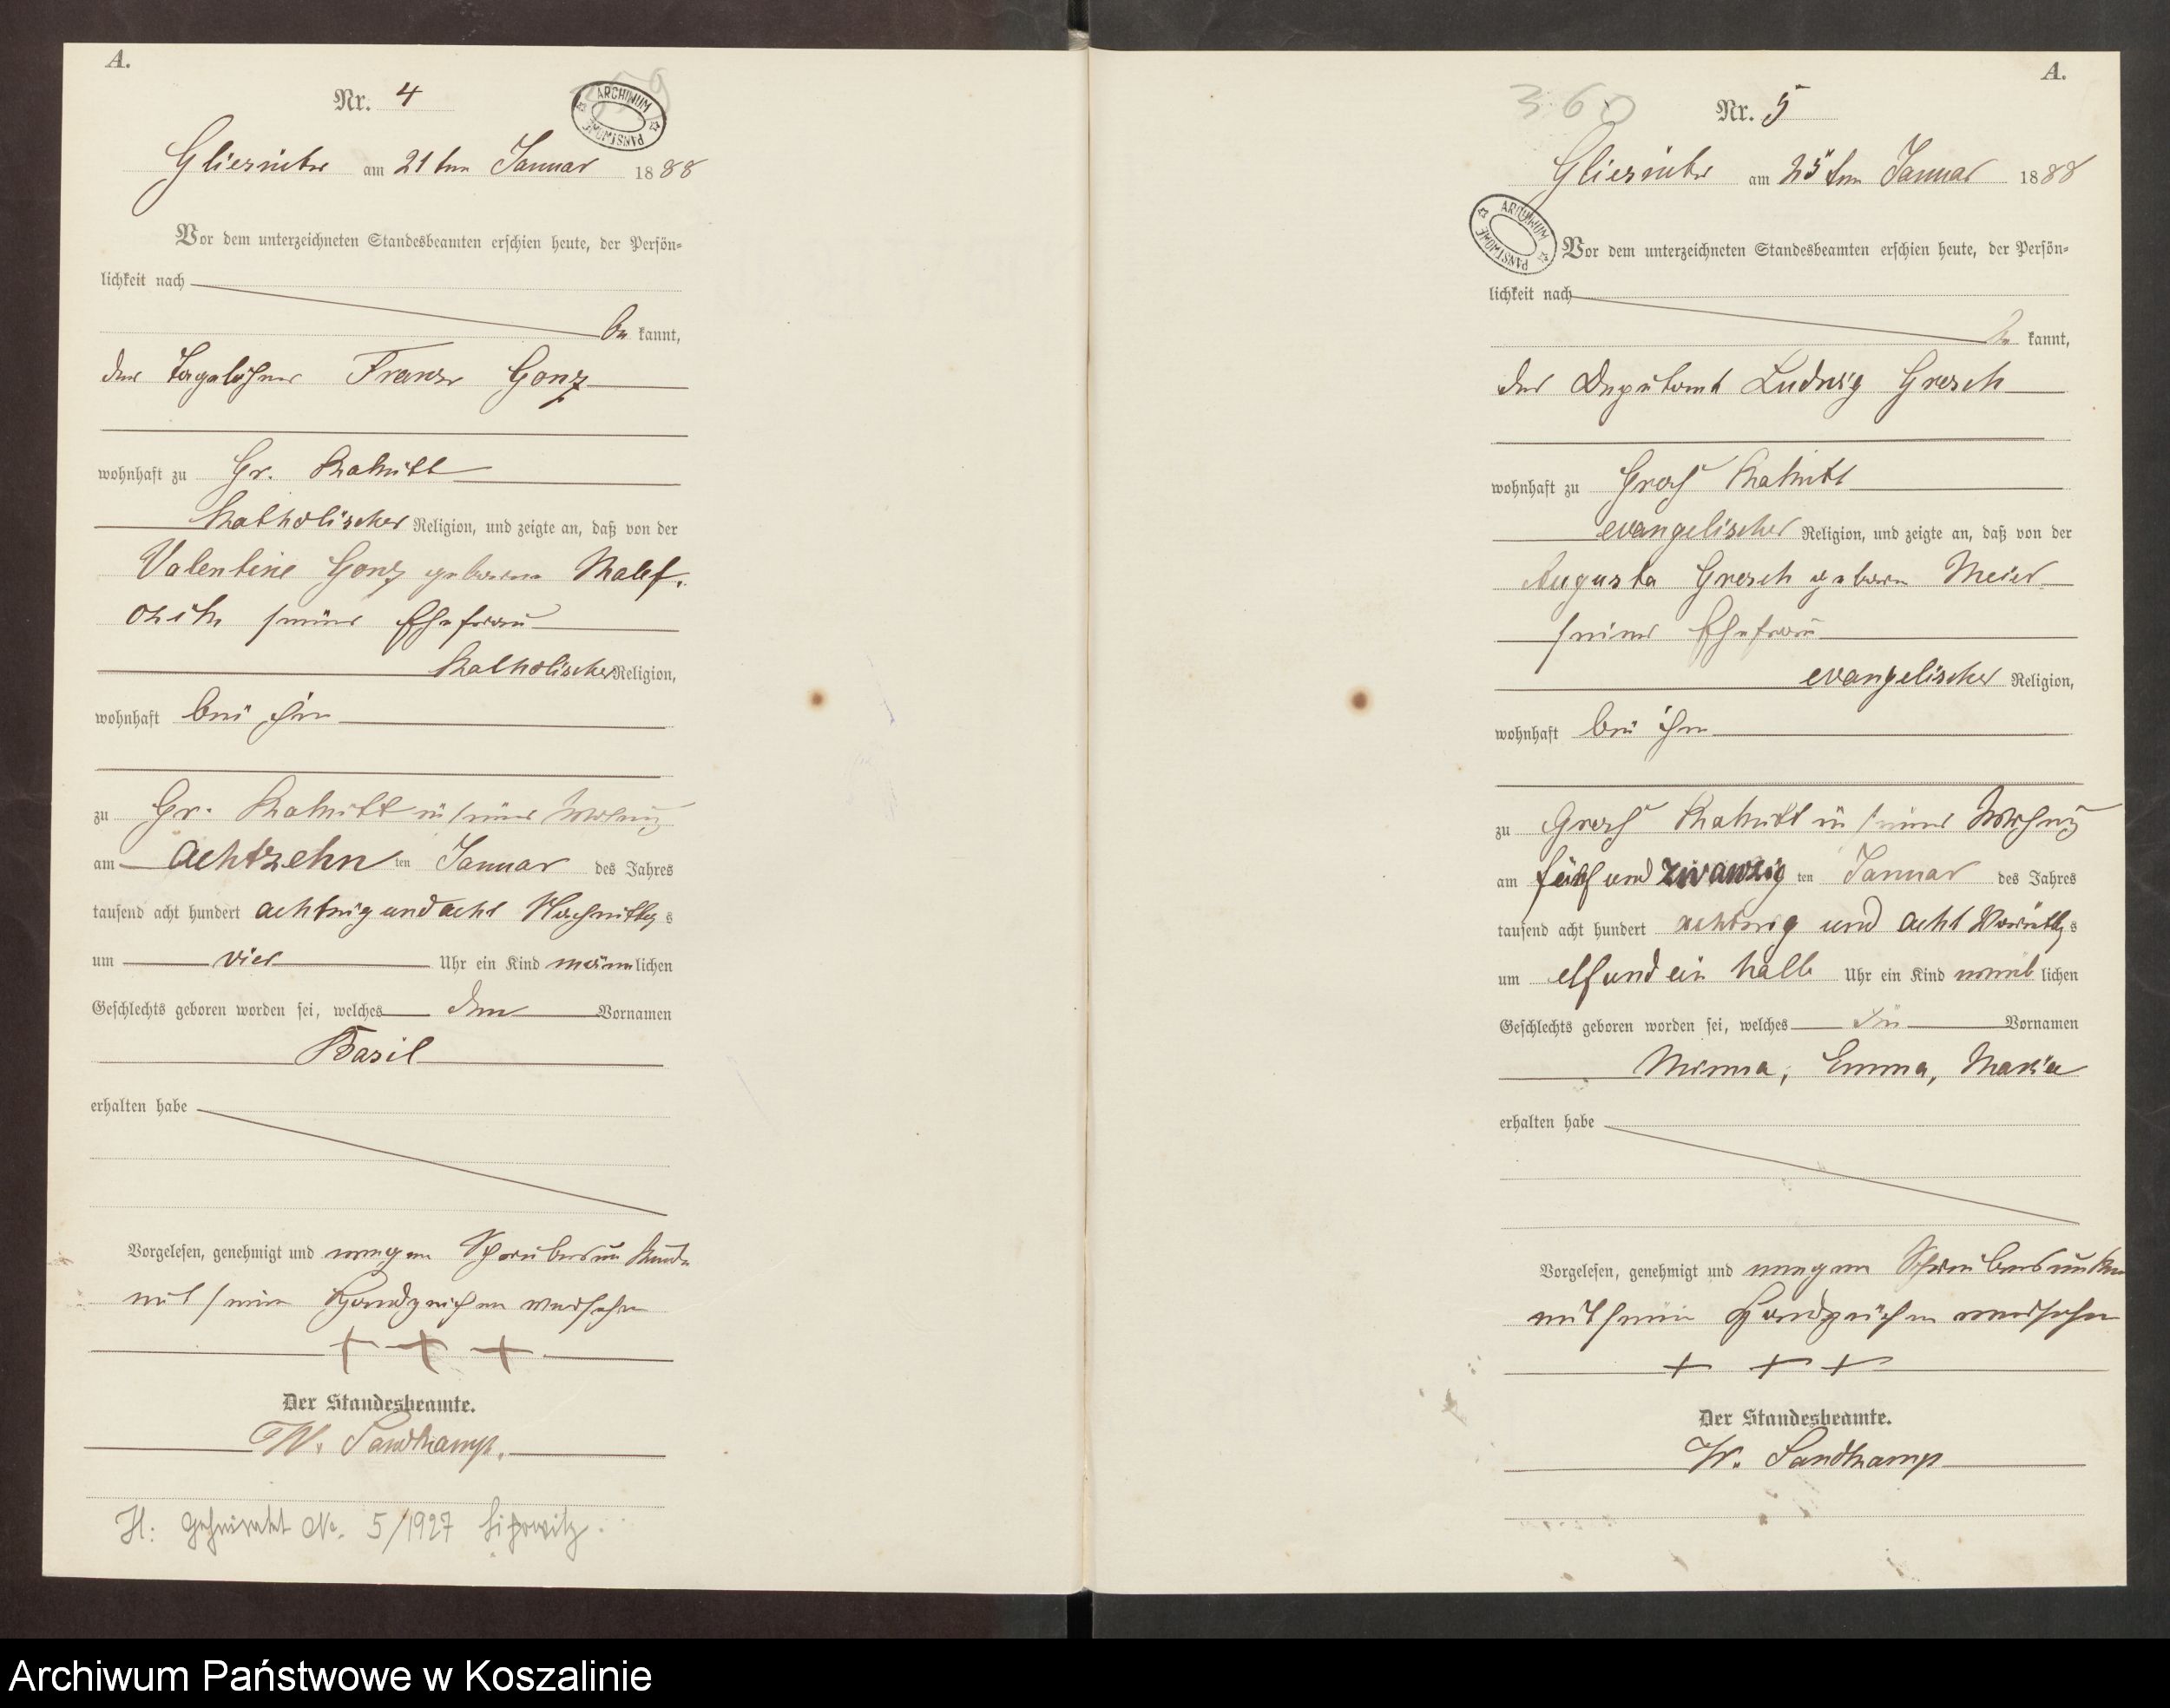 A.
Nr. 4
ARCHIWUM PAŃSTWOWE
am 21ten Januar 1888
Vor dem unterzeichneten Standesbeamten erschien heute, der Persön-
lichkeit nach
be kannt,
der Tagelöhner Franz Gonz
wohnhaft zu Gr.
Katholischer Religion, und zeigte an, daß von der
Valentine Gonz geborene
seiner Ehefrau
Katholischer Religion,
wohnhaft bei ihm
zu Gr. in seiner Wohnung
am achtzehn ten Januar des Jahres
tausend acht hundert achtzig und acht Nachmittags
um vier Uhr ein Kind männlichen
Geschlechts geboren worden sei, welches den Vornamen
Basil
erhalten habe
Vorgelesen, genehmigt und wegen Schreibensunkunde
mit seinen Handzeichen versehen
+ + +
Der Standesbeamte.
W. Sandkamp.
H: geheiratet No. 5/1927
A.
360
Nr. 5
am 25ten Januar 1888
ARCHIWUM PAŃSTWOWE
Vor dem unterzeichneten Standesbeamten erschien heute, der Persön-
lichkeit nach
be kannt,
der Deputant Ludwig Gresch
wohnhaft zu Groß
evangelischer Religion, und zeigte an, daß von der
Augusta Gresch geboren Meier
seiner Ehefrau
evangelischer Religion,
wohnhaft bei ihm
zu Groß in seiner Wohnung
am fünf und zwanzig ten Januar des Jahres
tausend acht hundert achtzig und acht Vormittags
um elf und ein halb Uhr ein Kind weiblichen
Geschlechts geboren worden sei, welches die Vornamen
Minna, Emma, Maria
erhalten habe
Vorgelesen, genehmigt und wegen
mit seinen Handzeichen versehen
+ + +
Der Standesbeamte.
W. Sandkamp
Archiwum Państwowe w Koszalinie